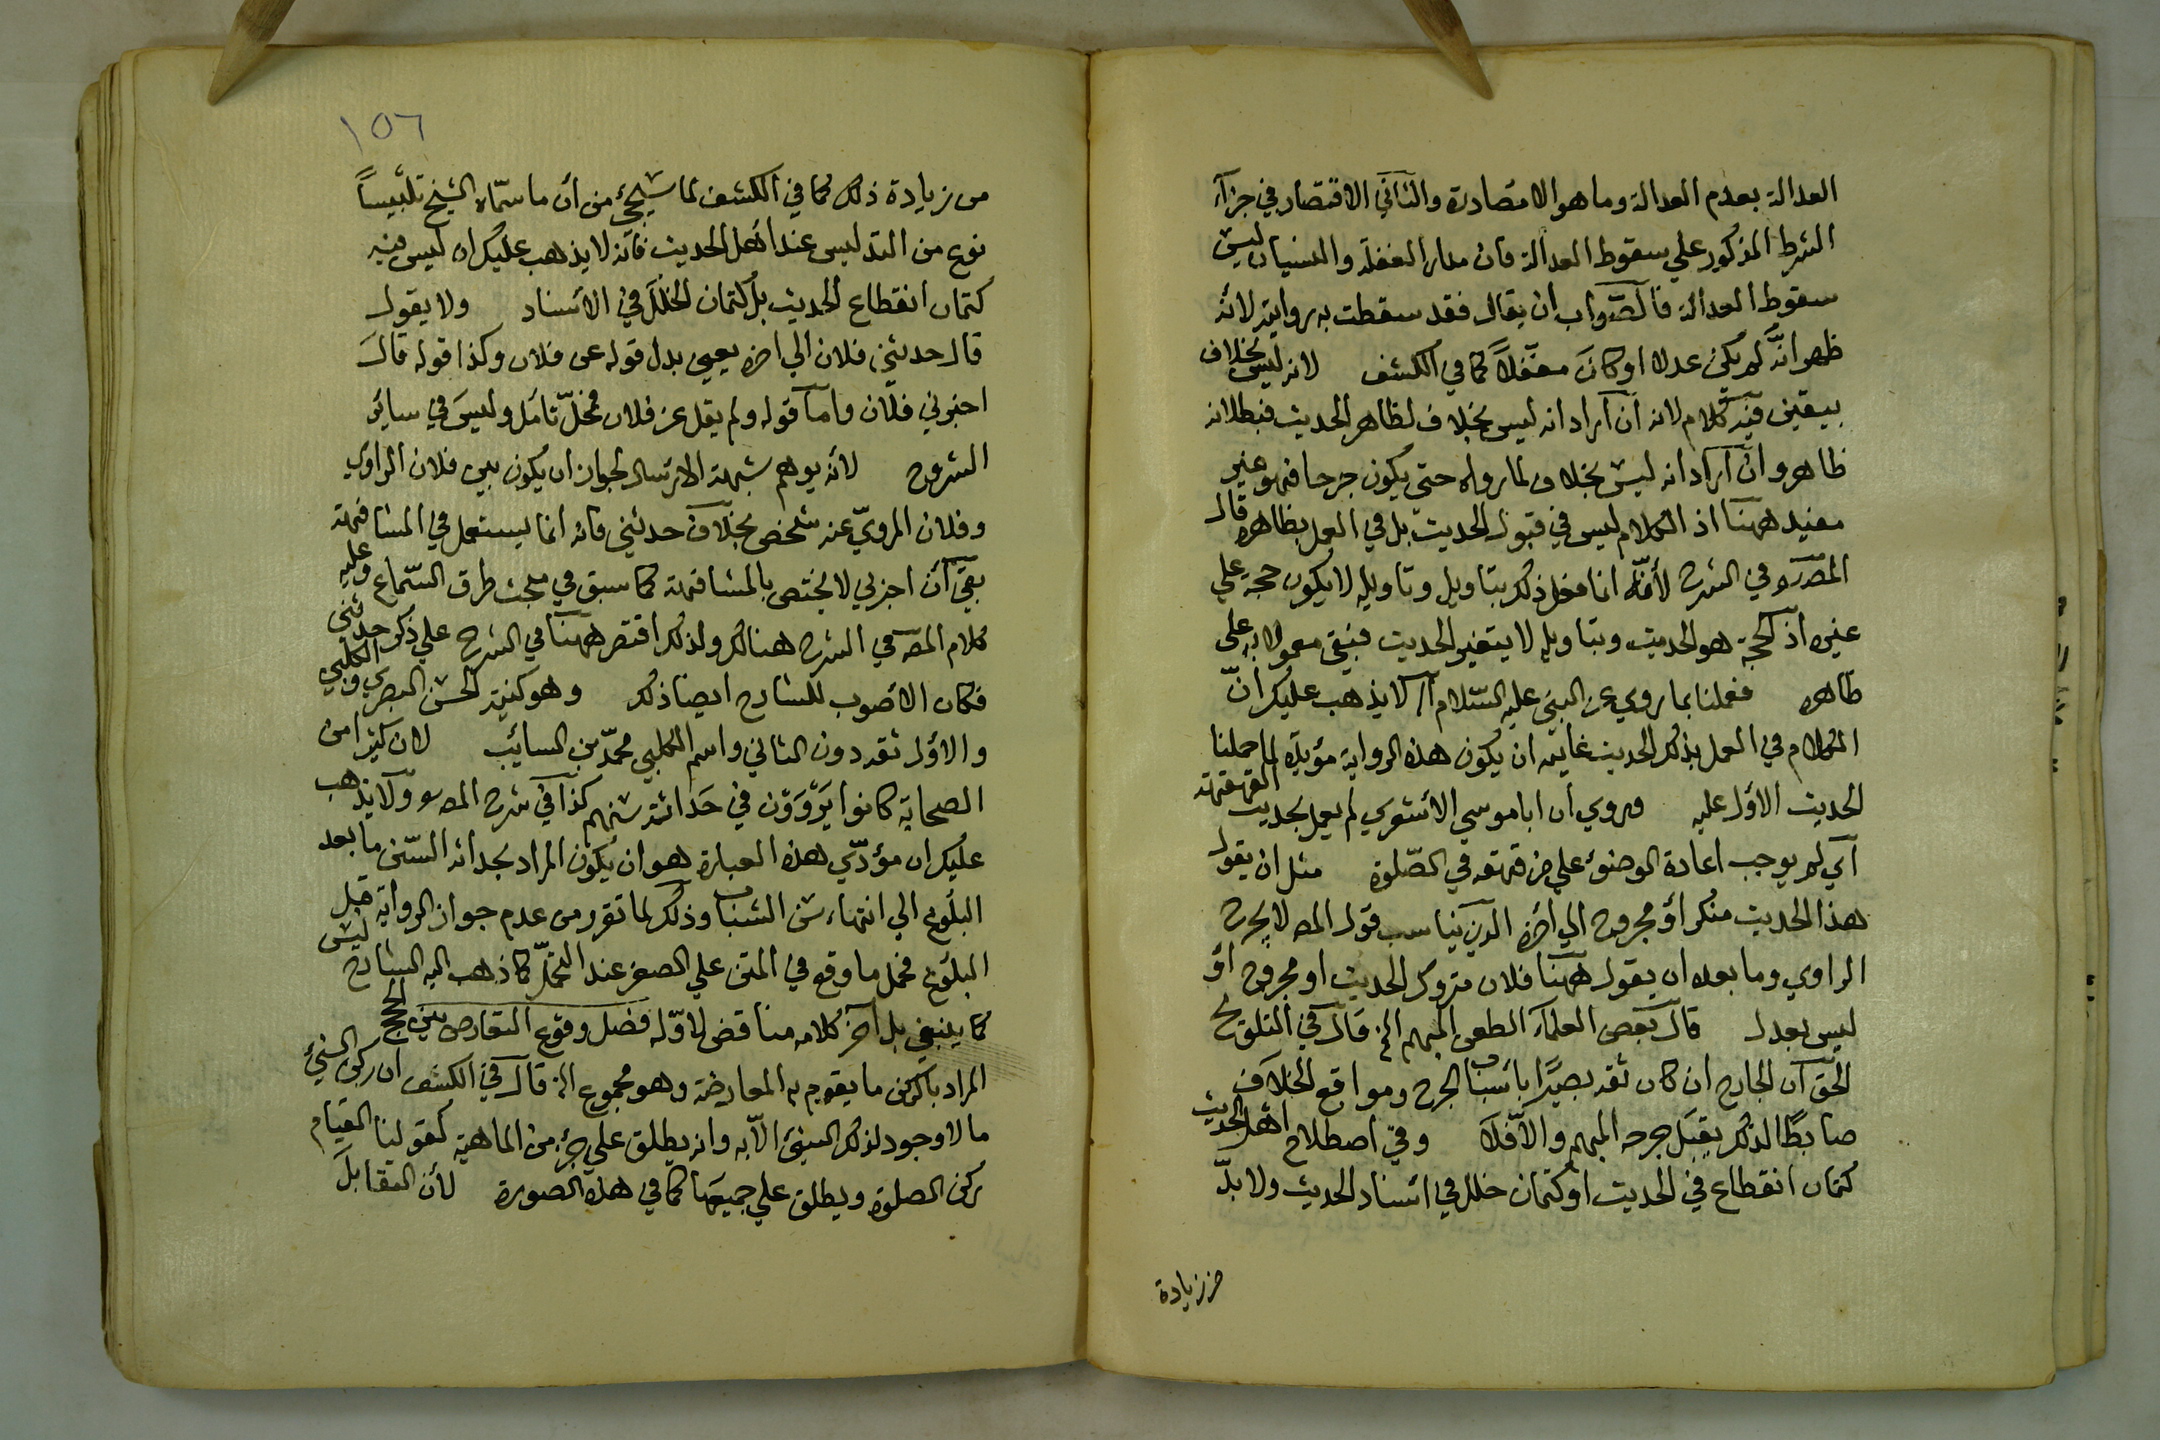 العدالة بعدم العدالة وما هو الا مصادرة والثاني الاقتصار في جزآء
الشرط المذكور علي سقوط العدالة فان مدار الغفلة والنسيان ليس
سقوط العدالة فالصّواب ان يقال فقد سقطت به روايته لانه
ظهر انّه لم يكن عدلا او كان مغفّلاً كما في الكشف لانه ليس بخلاف
بيقين فيه كلام لانه ان اراد انه ليس بخلاف لظاهر الحديث فبطلانه
ظاهر وان اراد انه ليس بخلاف لما رواه حتى يكون جرحا فهو غير
مفيد ههنا اذ الكلام ليس في قبول الحديث بل في العمل بظاهره قال
المصـ في الشرح لأنّه انما فعل ذلك بتاويل وتاويله لا يكون حجة علي
غيره اذ الحجة هو الحديث وبتاويله لا يتغير الحديث فبقي معمولا به على
ظاهره فعملنا بما روي عن النبي عليه السّلام آلا لا يذهب عليك انّ
الكلام في العمل بذلك الحديث غايته ان يكون هذه الرواية مؤيدة لما حملنا
الحديث الاوّل عليه وروي ان ابا موسي الاشعري لم يعمل بحديث القهقهة
آي لم يوجب اعادة الوضوء علي من قهقه في الصّلوة مثل ان يقول
هذا الحديث منكر او مجروح الي اخره الذي يناسب قول المصـ لا يجرح
الراوي وما بعده ان يقول ههنا فلان متروك الحديث او مجروح او
ليس بعدل قال بعض العلمآء الطعن المبهم الخ قال في التلويح
الحق ان الجارح ان كان ثقة بصيرًا باسباب الجرح ومواقع الخلاف
ضابطًا لذلك يقبل جرحه المبهم والّا فلا وفي اصطلاح اهل الحديث
كتمان انقطاع في الحديث او كتمان خلل في اسناد الحديث ولا بدّ
من زيادة
١٥٦
من زيادة ذلك كما في الكشف لما سيجئ من ان ما سمّاه الشيخ تلبيساً
نوع من التدليس عند اهل الحديث فانه لا يذهب عليك ان ليس فيه
كتمان انقطاع الحديث بل كتمان الخلل في الاسناد ولا يقول
قال حدثني فلان الي اخره يعني بدل قوله عن فلان وكذا قوله قال
اخبرني فلان واما قوله ولم يقل عن فلان فمحلّ تامل وليس في سائر
الشروح لانه يوهم شبهة الارسال لجواز ان يكون بين فلان الراوي
وفلان المرويّ عنه شخص بخلاف حدثني فانه انما يستعمل في المشافهة
بقي ان اخبرني لا يختص بالمشافهة كما سبق في مبحث طرق السّماع وعليه
كلام المصـ في الشرح هنالك ولذلك اقتصر ههنا في الشرح علي ذكر حدثني
فكان الاصوب للشارح ايضا ذلك وهو كنية الحسن البصري والكلبي
والاول ثقة دون الثاني واسم الكلبي محمدّ بن السائب لان كثيرا من
الصحابة كانوا يَرْوَوْن في حَدَاثة سنهم كذا في شرح المصـ ولا يذهب
عليك ان مؤدّي هذه العبارة هو ان يكون المراد بحداثه السّن ما بعد
البلوغ الي انتهاء سن الشباب وذلك لما تقرر من عدم جواز الرواية قبل
البلوغ فحمل ما وقع في المتن علي الصغر عند التحمّل كما ذهب اليه الشارح ليس
كما ينبغي بل آخر كلامه مناقض لاوّله فصل وقوع التعارض بين الحجج
المراد بالركن ما يقوم به المعارضة وهو مجموع الخ قال في الكشف ان ركن الشئ
ما لا وجود لذلك الشئ الّا به وانه يطلق علي جزء من الماهية كقولنا القيام
ركن الصلوة ويطلق علي جميعها كما في هذه الصورة لأن التقابل